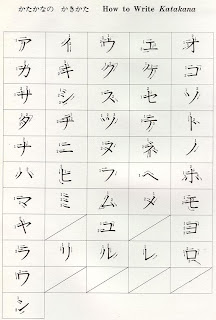 かたかなの かきかた How to Write Katakana
ア イ ウ エ オ
カ キ ク ケ コ
サ シ ス セ ソ
タ チ ツ テ ト
ナ ニ ヌ ネ ノ
ハ ヒ フ ヘ ホ
マ ミ ム メ モ
ヤ ユ ヨ
ラ リ ル レ ロ
ワ
ン